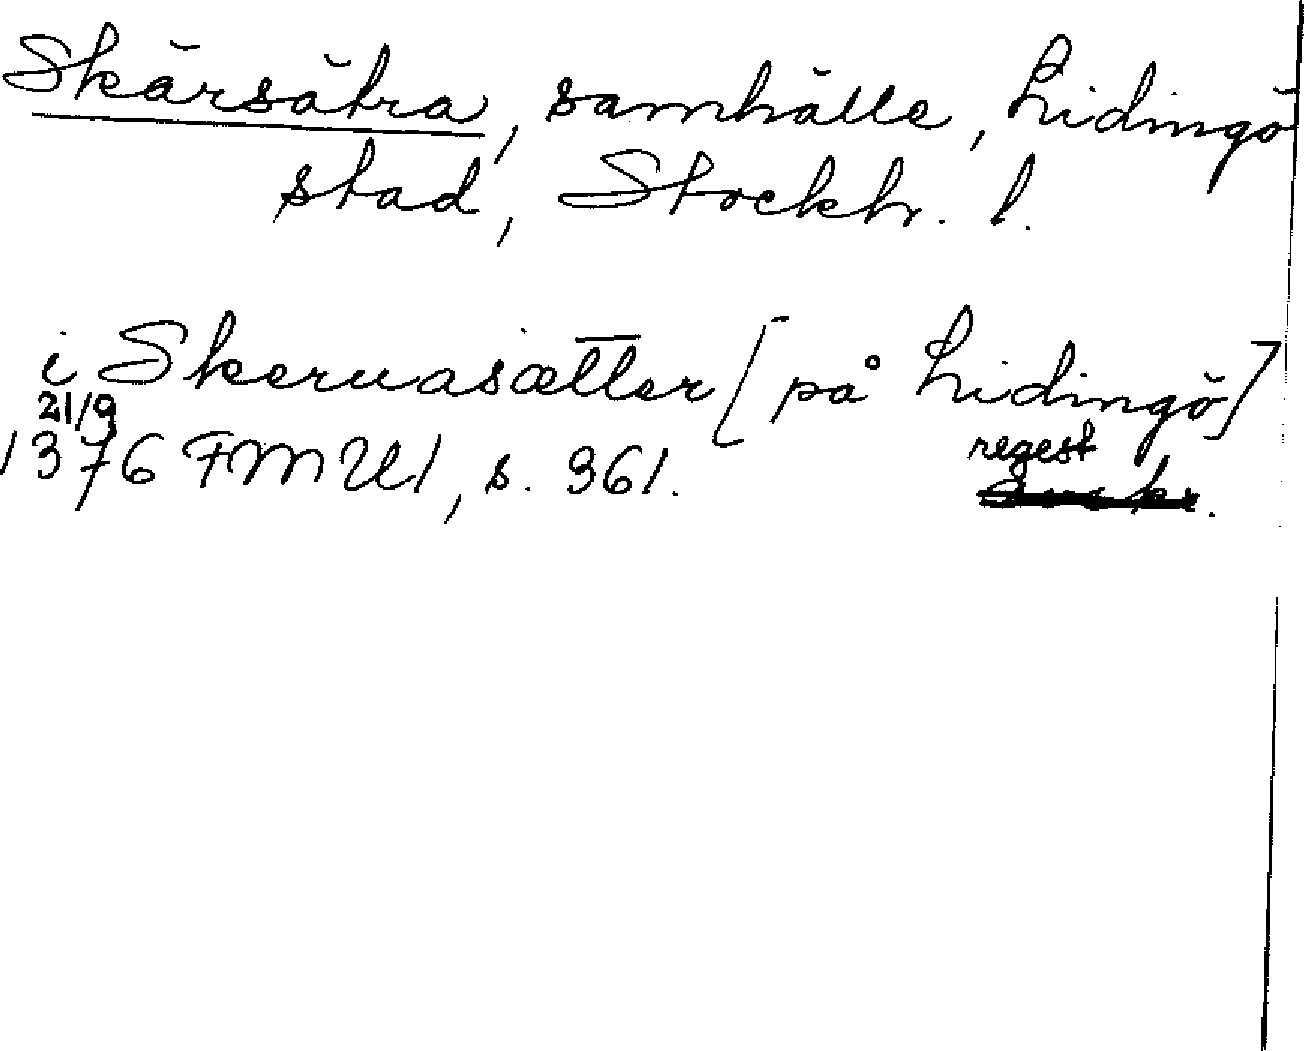 Skärsätra, samhälle, Lidingö
stad, Stockh. l.
i Skeruasætter [på Lidingö]
21/9
1376 FMU 1, s. 361. regest